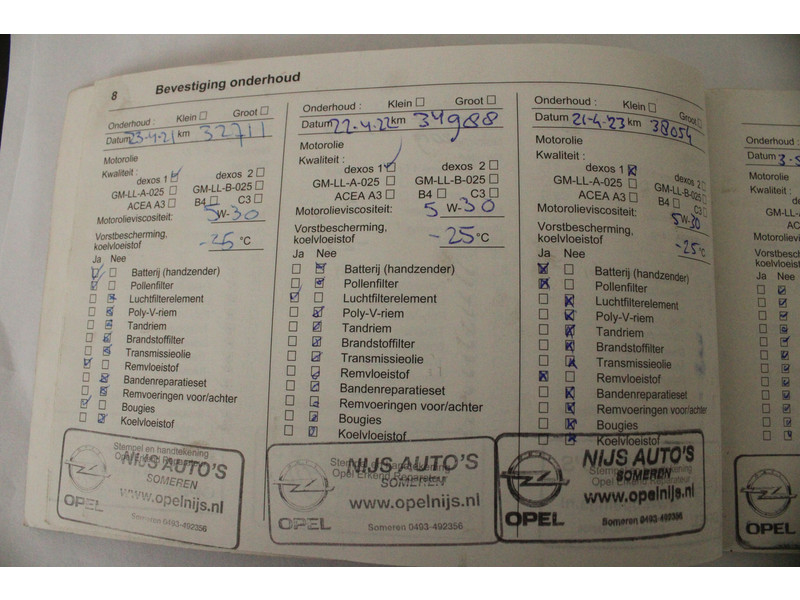 8 Bevestiging onderhoud
Onderhoud : Klein ☐ Groot ☐
Datum 23-4-21 km 32711
Motorolie
Kwaliteit : dexos 1 ☑ dexos 2 ☐
GM-LL-A-025 ☐ GM-LL-B-025 ☐
ACEA A3 ☐ B4 ☐ C3 ☐
Motorolieviscositeit: 5 W-30
Vorstbescherming,
koelvloeistof -25 °C
Ja Nee
Batterij (handzender)
Pollenfilter
Luchtfilterelement
Poly-V-riem
Tandriem
Brandstoffilter
Transmissieolie
Remvloeistof
Bandenreparatieset
Remvoeringen voor/achter
Bougies
Koelvloeistof
Stempel en handtekening
Opel Erkend Reparateur
NIJS AUTO'S
SOMEREN
www.opelnijs.nl
OPEL
Someren 0493-492356
Onderhoud : Klein ☐ Groot ☐
Datum 22-4-22 km 34988
Motorolie
Kwaliteit : dexos 1 ☑ dexos 2 ☐
GM-LL-A-025 ☐ GM-LL-B-025 ☐
ACEA A3 ☐ B4 ☐ C3 ☐
Motorolieviscositeit: 5 W-30
Vorstbescherming,
koelvloeistof -25 °C
Ja Nee
Batterij (handzender)
Pollenfilter
Luchtfilterelement
Poly-V-riem
Tandriem
Brandstoffilter
Transmissieolie
Remvloeistof
Bandenreparatieset
Remvoeringen voor/achter
Bougies
Koelvloeistof
Stempel en handtekening
Opel Erkend Reparateur
NIJS AUTO'S
SOMEREN
www.opelnijs.nl
OPEL
Someren 0493-492356
Onderhoud : Klein ☐ Groot ☐
Datum 21-4-23 km 38054
Motorolie
Kwaliteit : dexos 1 ☒ dexos 2 ☐
GM-LL-A-025 ☐ GM-LL-B-025 ☐
ACEA A3 ☐ B4 ☐ C3 ☐
Motorolieviscositeit: 5W-30
Vorstbescherming,
koelvloeistof -25 °C
Ja Nee
Batterij (handzender)
Pollenfilter
Luchtfilterelement
Poly-V-riem
Tandriem
Brandstoffilter
Transmissieolie
Remvloeistof
Bandenreparatieset
Remvoeringen voor/achter
Bougies
Koelvloeistof
NIJS AUTO'S
SOMEREN
Opel Erkend Reparateur
www.opelnijs.nl
OPEL
Someren 0493-492356
Onderhoud :
Datum
Motorolie
Kwaliteit :
GM-LL-
AC
Motorolievis
Vorstbesche
koelvloeisto
Ja Nee
OPEL